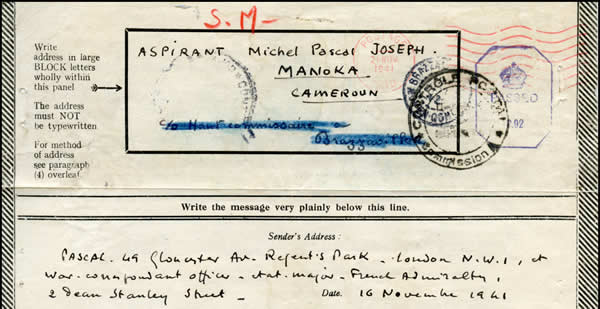 S.M-
Write
address in large
BLOCK letters
wholly within
this panel
The address
must NOT
be typewritten
For method
of address
see paragraph
(4) overleaf.
ASPIRANT Michel Pascal JOSEPH.
MANOKA
CAMEROUN
c/o Haut commissaire
CONTROLE POSTAL
Commission A
Write the message very plainly below this line.
Sender's Address:
PASCAL. 49 Gloucester Av. Regent's Park - London N.W.1,
officer - état-major - French Admiralty,
2 Dean Stanley Street - Date. 16 Novembre 1941